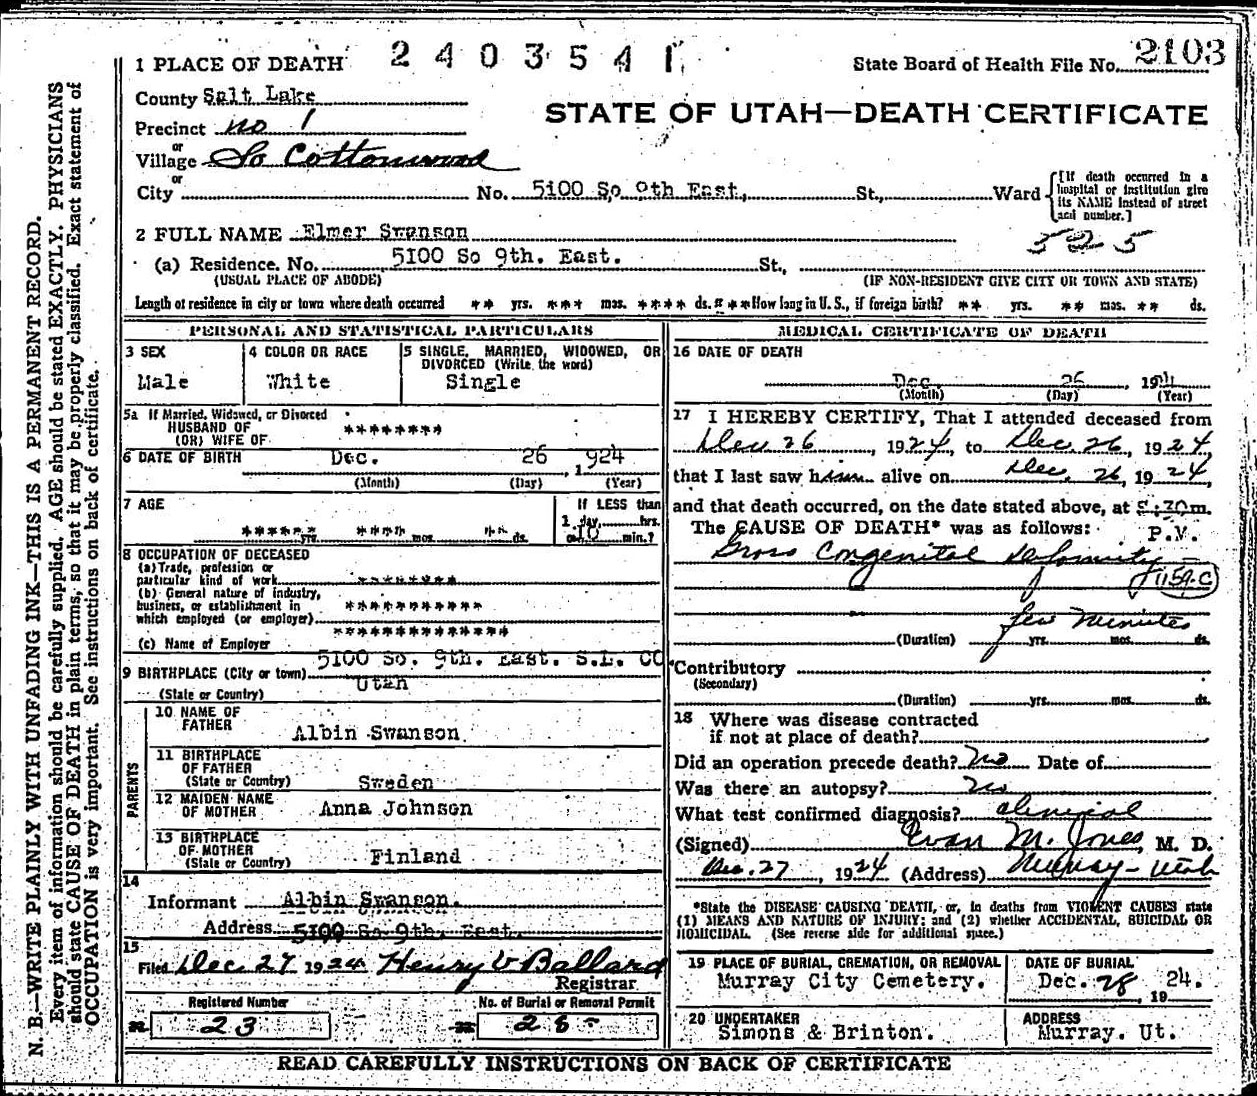 2403541
State Board of Health File No. 2103
1 PLACE OF DEATH
County Salt Lake
STATE OF UTAH—DEATH CERTIFICATE
Precinct no 1
or
Village So Cottonwood
or
City No. 5100 So, 9th East, St., Ward
[If death occurred in a
hospital or institution give
its NAME instead of street
and number.]
2 FULL NAME Elmer Swanson
525
(a) Residence. No. 5100 So 9th. East. St.,
(USUAL PLACE OF ABODE) (IF NON-RESIDENT GIVE CITY OR TOWN AND STATE)
Length of residence in city or town where death occurred ** yrs. *** mos. **** ds. *** How long in U. S., if foreign birth? ** yrs. ** mos. ** ds.
PERSONAL AND STATISTICAL PARTICULARS
3 SEX
Male
4 COLOR OR RACE
White
5 SINGLE, MARRIED, WIDOWED, OR
DIVORCED (Write the word)
Single
5a If Married, Widowed, or Divorced
HUSBAND OF
(OR) WIFE OF
********
6 DATE OF BIRTH Dec. 26 1924
(Month) (Day) (Year)
7 AGE
****** yrs. **** mos. ** ds.
If LESS than
1 day, hrs.
or 10 min.?
8 OCCUPATION OF DECEASED
(a) Trade, profession or
particular kind of work ********
(b) General nature of industry,
business, or establishment in
which employed (or employer) ***********
(c) Name of Employer **************
5100 So. 9th. East. S.L. CO
9 BIRTHPLACE (City or town)
Utah
(State or Country)
PARENTS
10 NAME OF
FATHER
Albin Swanson
11 BIRTHPLACE
OF FATHER
(State or Country) Sweden
12 MAIDEN NAME
OF MOTHER Anna Johnson
13 BIRTHPLACE
OF MOTHER
(State or Country) Finland
14
Informant Albin Swanson.
Address 5100 So 9th. East.
15
Filed Dec 27 1924 Henry V Ballard
Registrar
Registered Number No. of Burial or Removal Permit
23 28
MEDICAL CERTIFICATE OF DEATH
16 DATE OF DEATH
Dec. 26, 1924
(Month) (Day) (Year)
17 I HEREBY CERTIFY, That I attended deceased from
Dec 26, 1924, to Dec. 26, 1924,
that I last saw him alive on Dec. 26, 1924,
and that death occurred, on the date stated above, at :30m.
The CAUSE OF DEATH* was as follows: P.M.
Gross Congenital deformity
159-C
few minutes
(Duration) yrs. mos. ds.
Contributory
(Secondary)
(Duration) yrs. mos. ds.
18 Where was disease contracted
if not at place of death?
Did an operation precede death? No Date of
Was there an autopsy? No
What test confirmed diagnosis? clinical
(Signed) Evan M. Jones, M. D.
Dec. 27, 1924 (Address) Murray - Utah
*State the DISEASE CAUSING DEATH, or, in deaths from VIOLENT CAUSES state
(1) MEANS AND NATURE OF INJURY; and (2) whether ACCIDENTAL, SUICIDAL OR
HOMICIDAL. (See reverse side for additional space.)
19 PLACE OF BURIAL, CREMATION, OR REMOVAL
Murray City Cemetery.
DATE OF BURIAL
Dec. 28, 19 24.
20 UNDERTAKER
Simons & Brinton.
ADDRESS
Murray. Ut.
READ CAREFULLY INSTRUCTIONS ON BACK OF CERTIFICATE
N. B.—WRITE PLAINLY WITH UNFADING INK—THIS IS A PERMANENT RECORD.
Every item of information should be carefully supplied. AGE should be stated EXACTLY. PHYSICIANS
should state CAUSE OF DEATH in plain terms, so that it may be properly classified. Exact statement of
OCCUPATION is very important. See instructions on back of certificate.